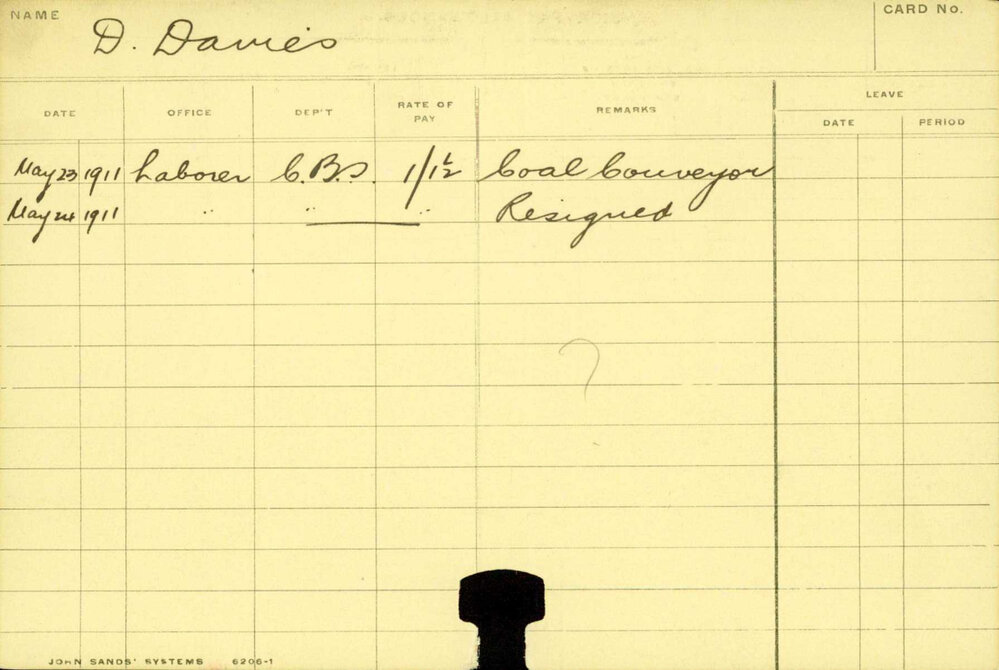 NAME D. Davies CARD No.
DATE OFFICE DEP'T RATE OF PAY REMARKS LEAVE
DATE PERIOD
May 23 1911 Laborer C.B.S. 1/1½ Coal Conveyor
May 24 1911 " " " Resigned
?
JOHN SANDS' SYSTEMS 6206-1